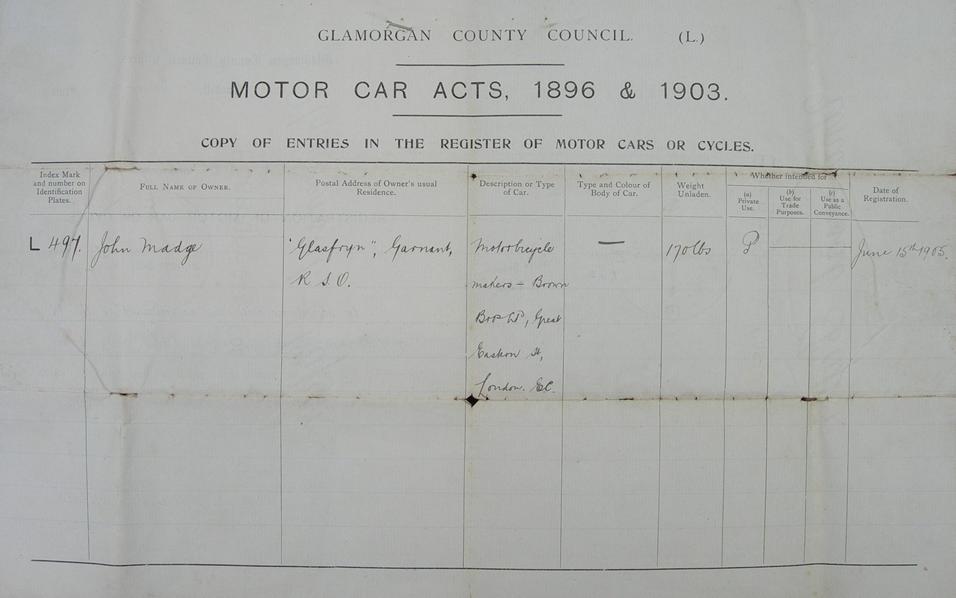 GLAMORGAN COUNTY COUNCIL. (L.)
MOTOR CAR ACTS, 1896 & 1903.
COPY OF ENTRIES IN THE REGISTER OF MOTOR CARS OR CYCLES.
Index Mark and number on Identification Plates.
FULL NAME OF OWNER.
Postal Address of Owner's usual Residence.
Description or Type of Car.
Type and Colour of Body of Car.
Weight Unladen.
Whether intended for
(a) Private Use.
(b) Use for Trade Purposes.
(c) Use as a Public Conveyance.
Date of Registration.
L 497.
John Madge
"Glasfryn", Garnant,
R S O.
Motorbicycle
makers – Brown
Bros Ld, Great
Eastern St,
London. EC.
—
170 lbs
P
June 15th 1905.